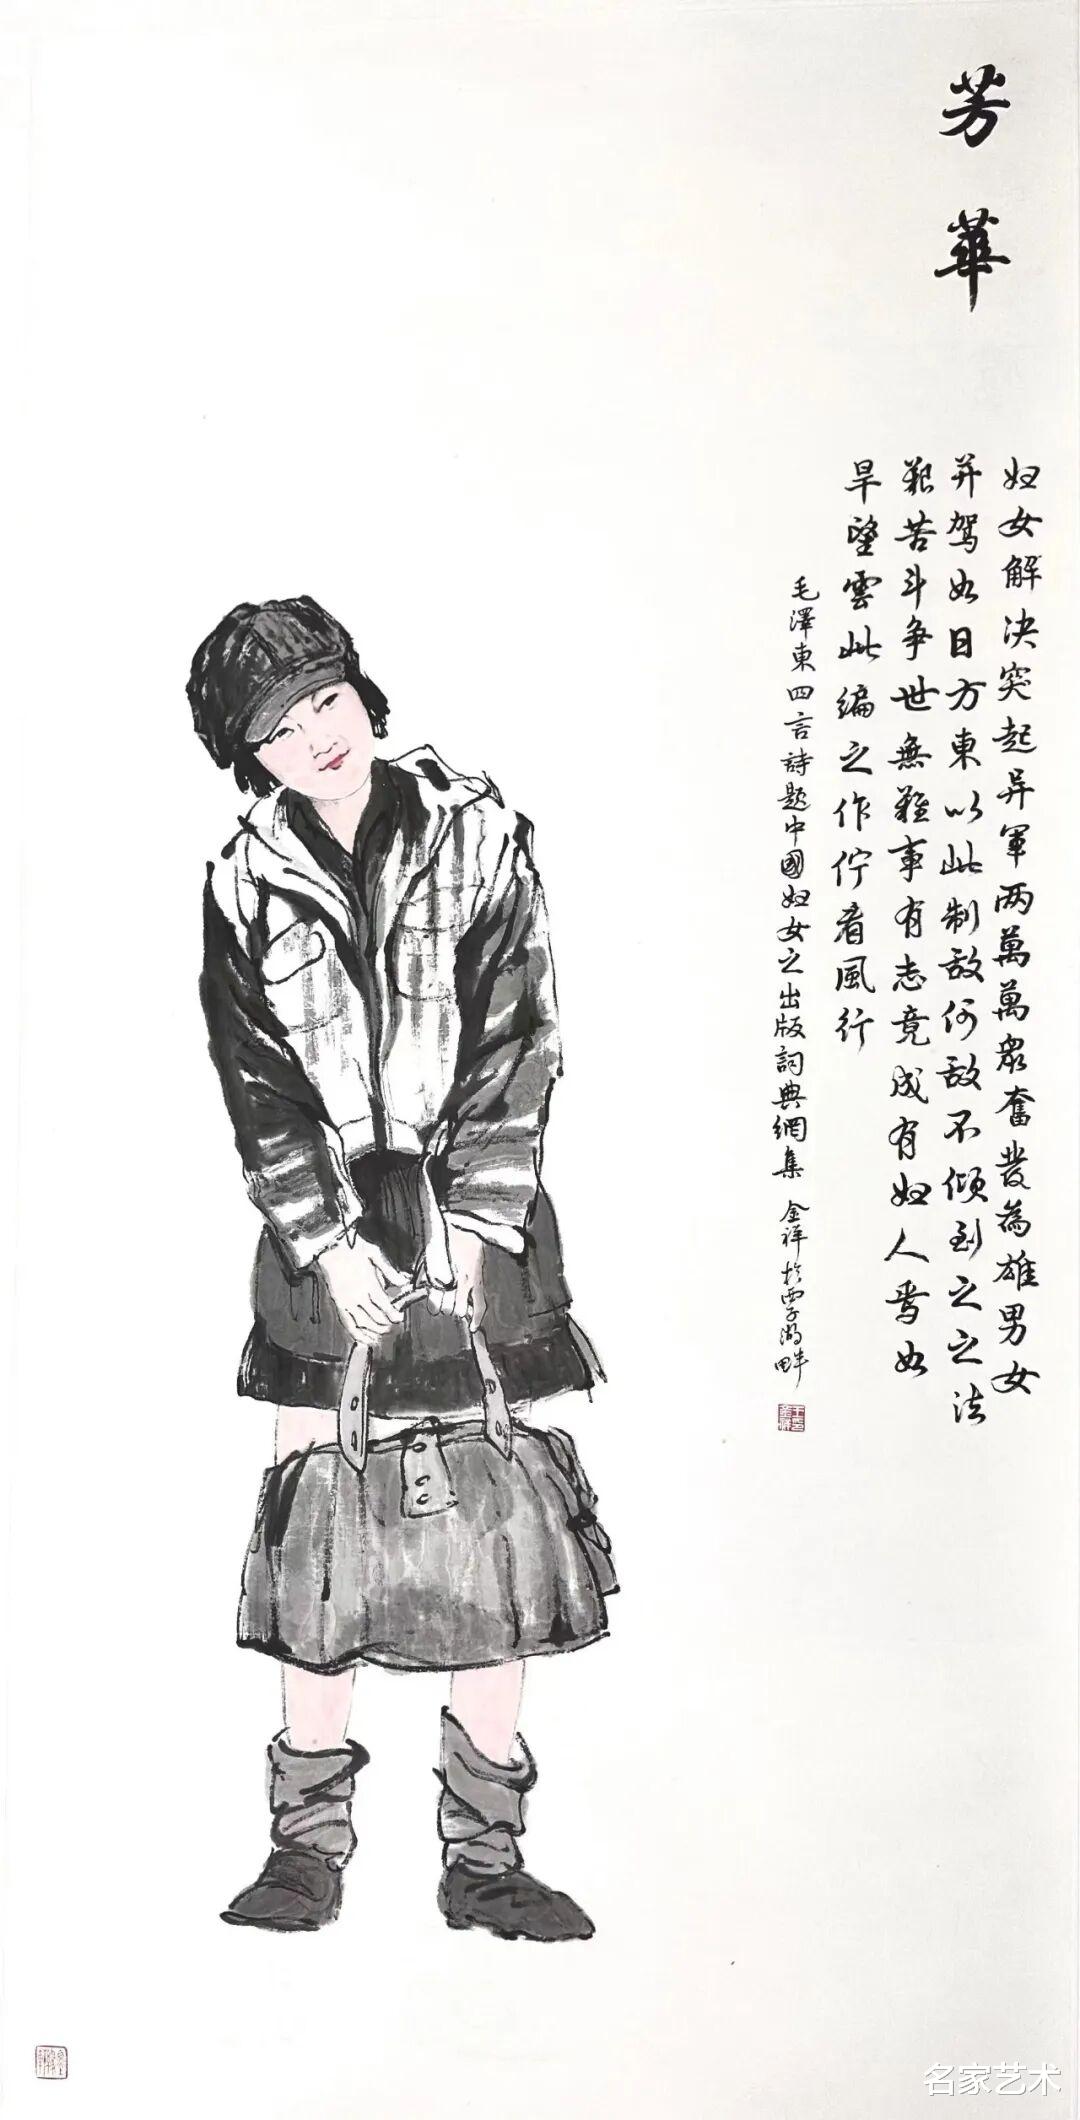 芳華
妇女解决突起异軍两萬萬衆奮發為雄男女
并驾如日方東以此制敌何敌不倾到之之法
艰苦斗争世無難事有志竟成有妇人焉如
旱望雲此編之作佇看風行
毛澤東四言詩題中國妇女之出版詞典網集 金祥於西子湖畔
名家艺术